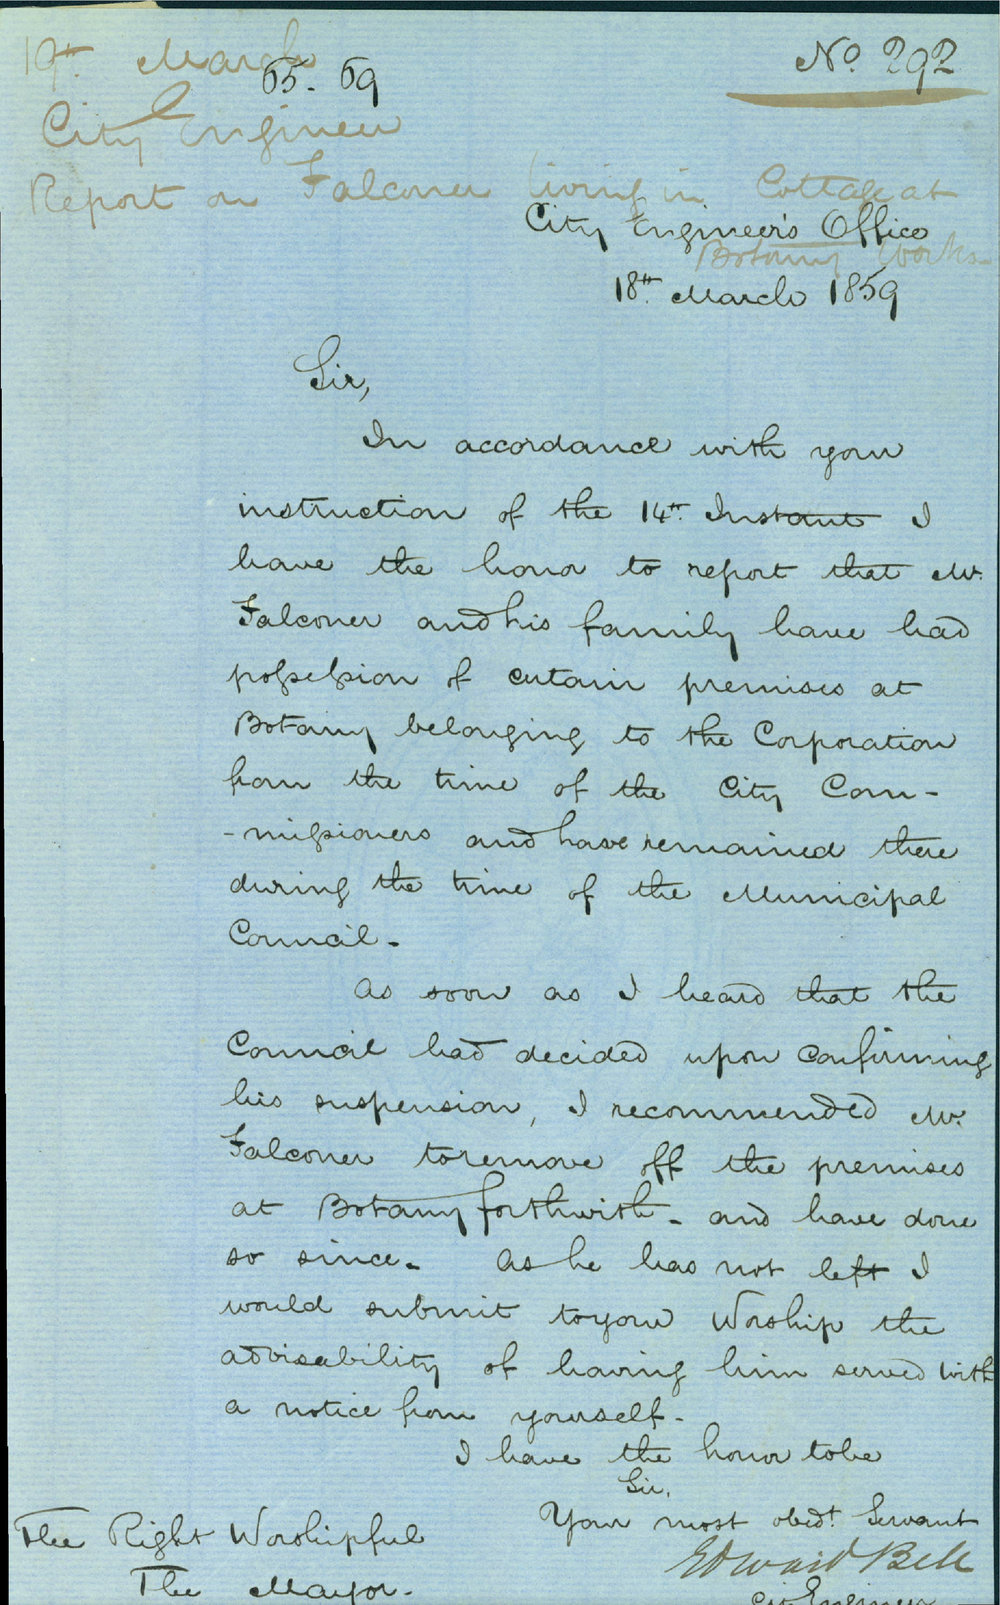 19th March
65. 69
No. 292
City Engineer
Report on Falconer living in Cottage at
Botany Works
City Engineer's Office
18th March 1859
Sir,
In accordance with your
instruction of the 14th Instant I
have the honor to report that Mr.
Falconer and his family have had
possession of certain premises at
Botany belonging to the Corporation
from the time of the City Com-
-missioners and have remained there
during the time of the Municipal
Council.-
As soon as I heard that the
Council had decided upon confirming
his suspension, I recommended Mr.
Falconer to remove off the premises
at Botany forthwith - and have done
so since. As he has not left I
would submit to your Worship the
advisability of having him served with
a notice from yourself.-
I have the honor to be
Sir,
Your most obedt. Servant
Edward Bell
City Engineer
The Right Worshipful
The Mayor.